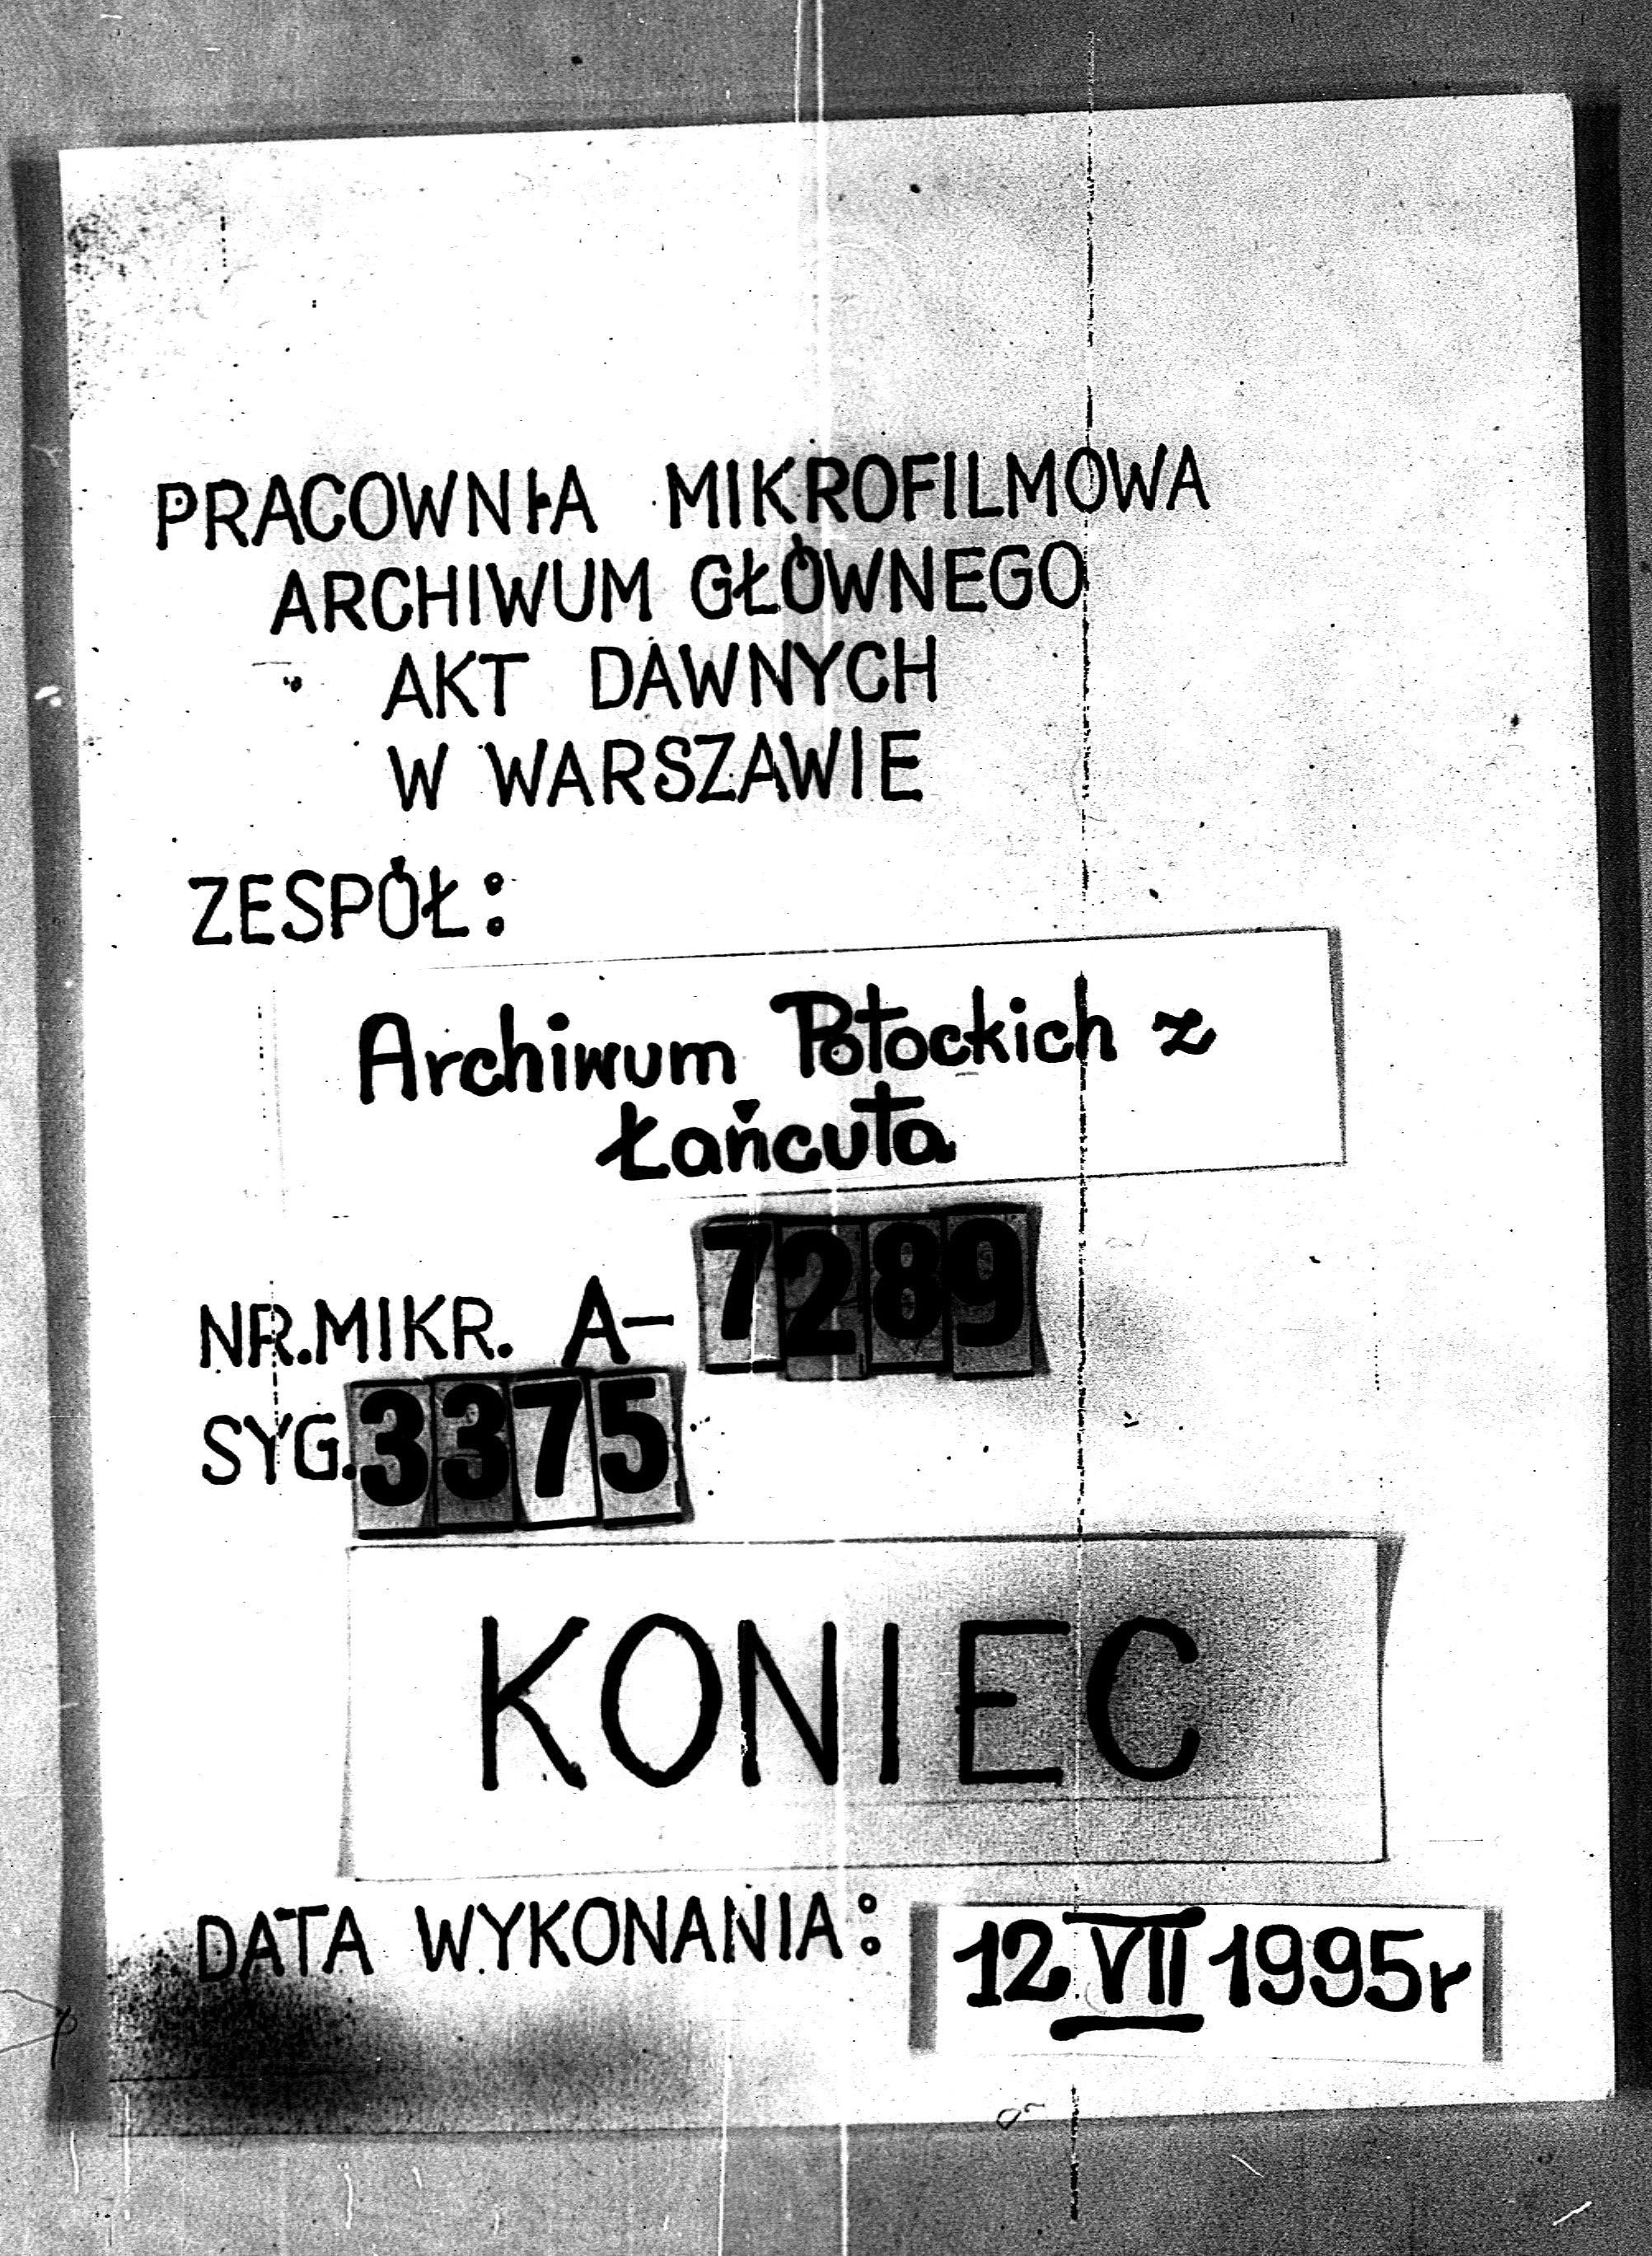 PRACOWNIA MIKROFILMOWA
ARCHIWUM GŁÓWNEGO
AKT DAWNYCH
W WARSZAWIE
ZESPÓŁ:
Archiwum Potockich z
Łańcuta
NR.MIKR. A- 7289
SYG. 3375
KONIEC
DATA WYKONANIA: 12 VII 1995r